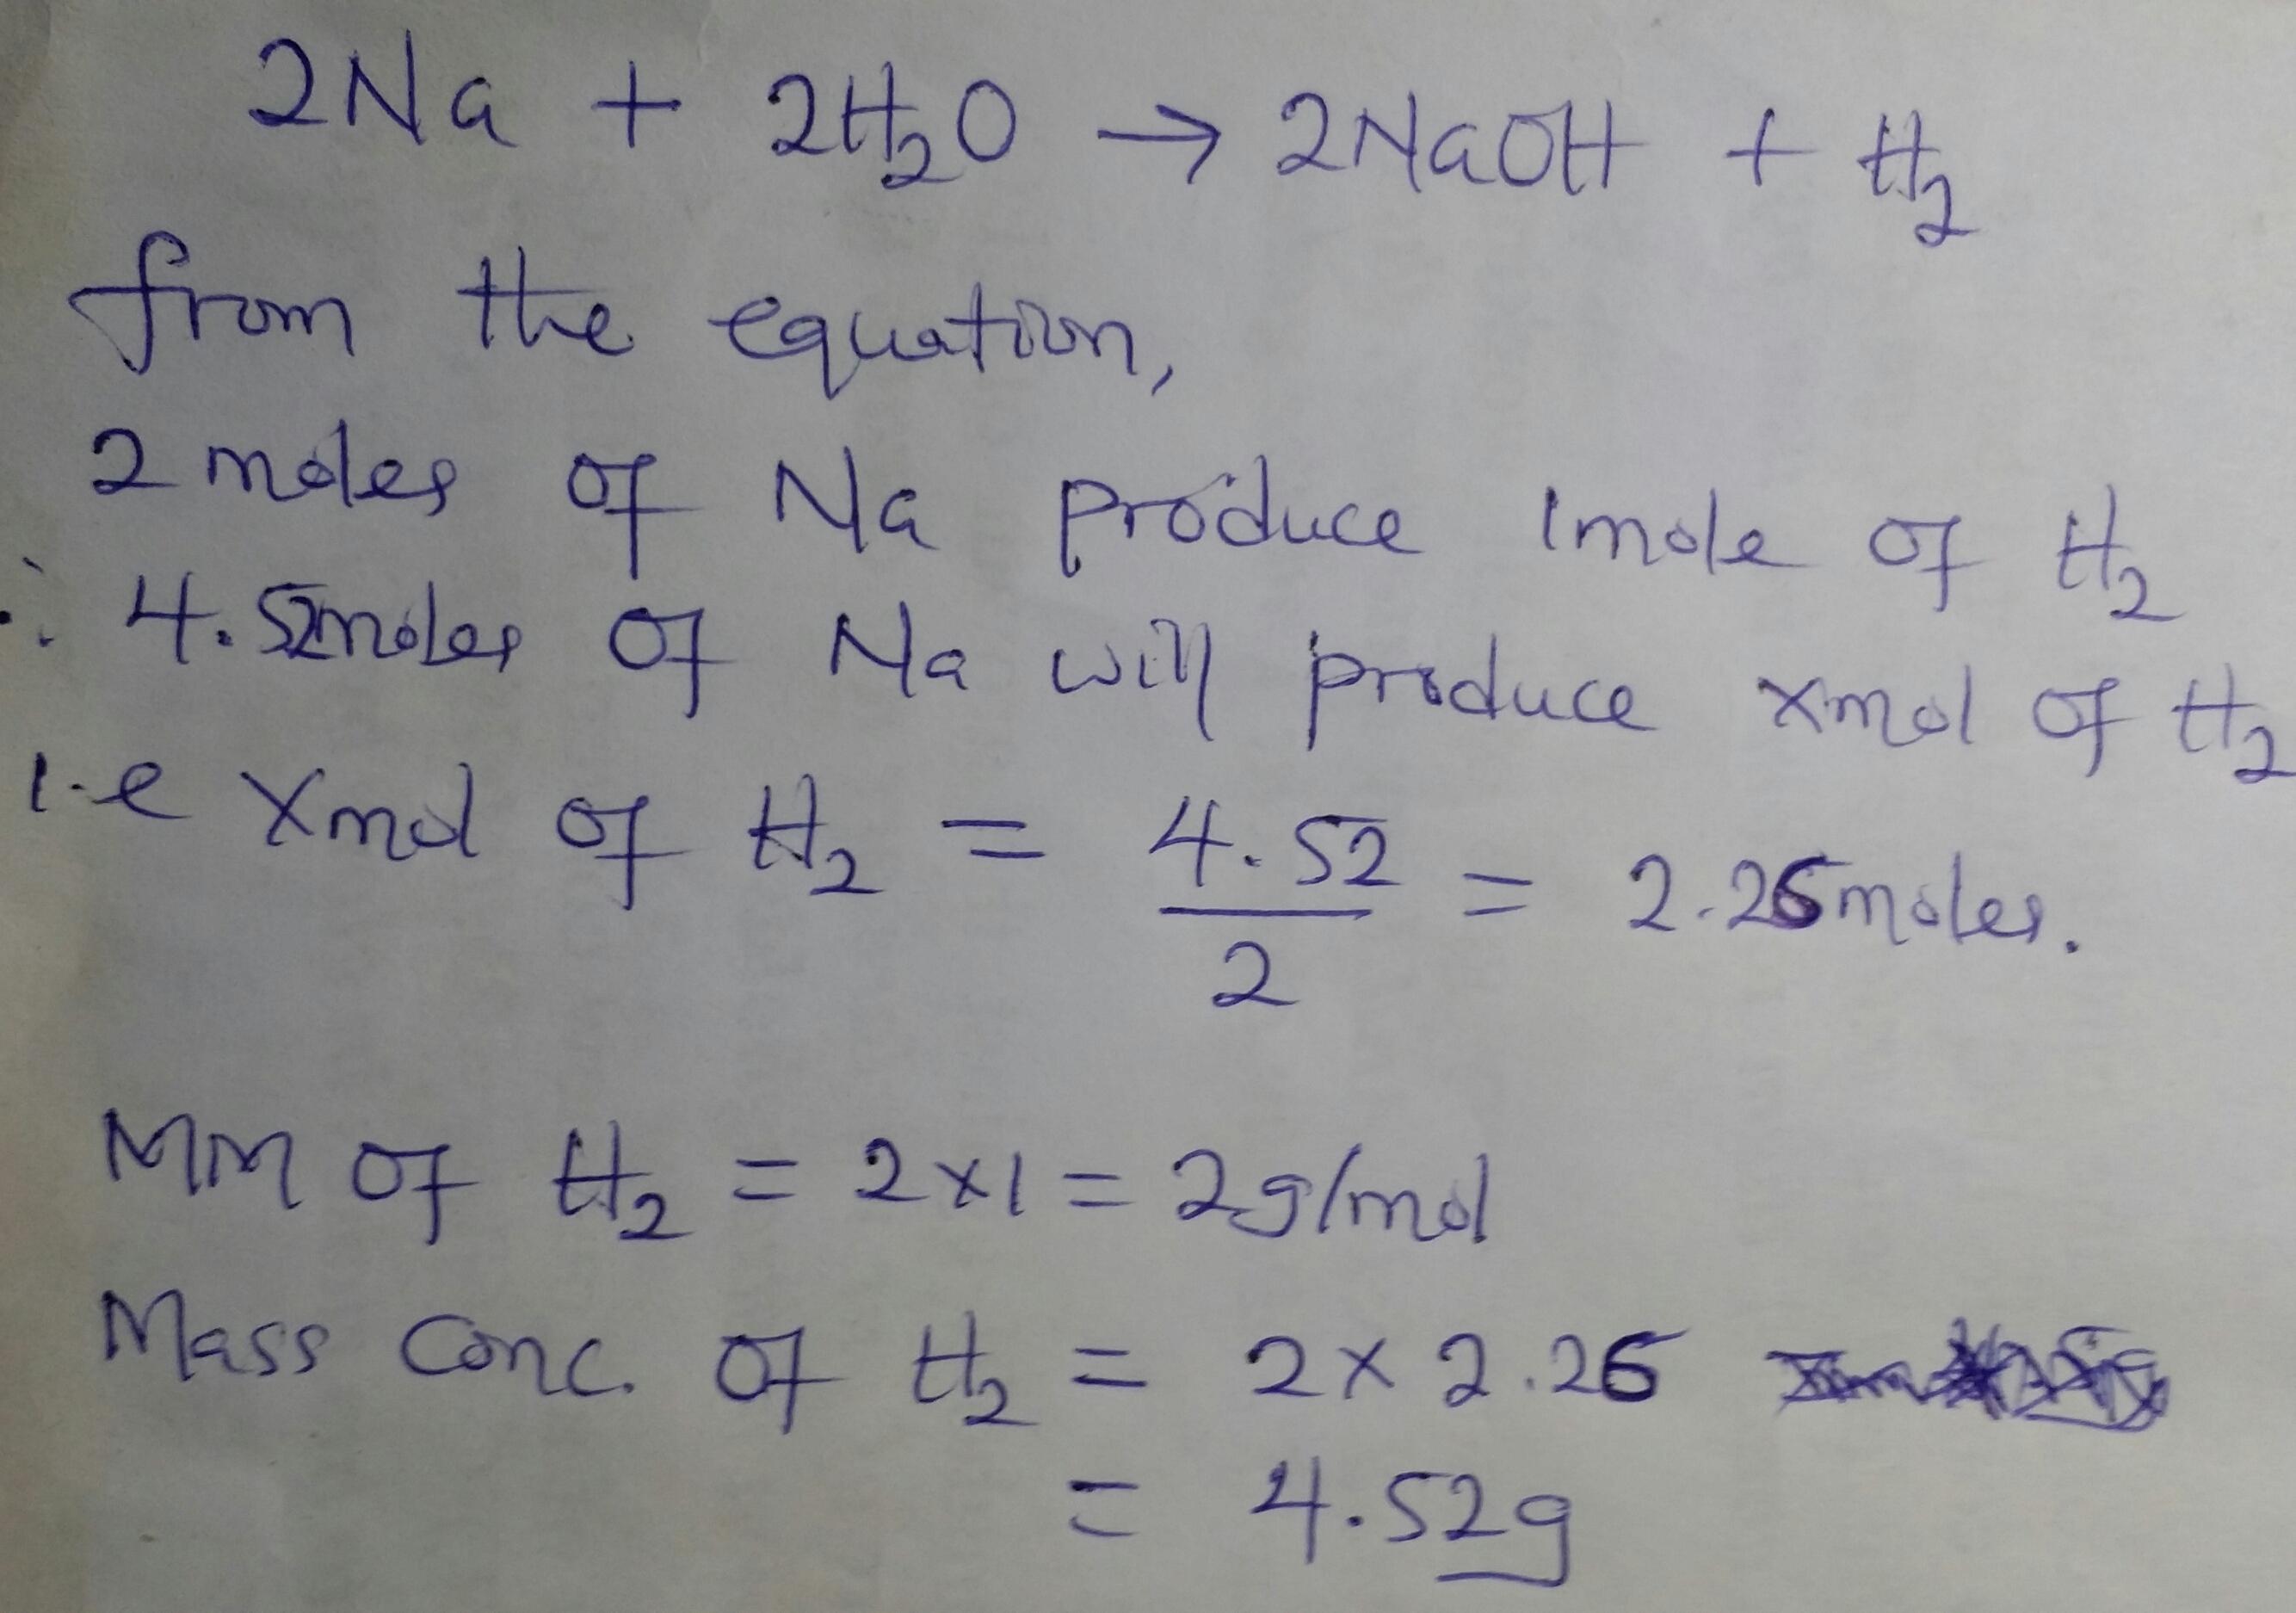 2Na + 2H₂O → 2NaOH + H₂
from the equation,
2 moles of Na produce 1mole of H₂
∴ 4.52moles of Na will produce xmol of H₂
i.e xmol of H₂ = 4.52/2 = 2.26moles.
MM of H₂ = 2×1 = 2g/mol
Mass Conc. of H₂ = 2 × 2.26
= 4.52g